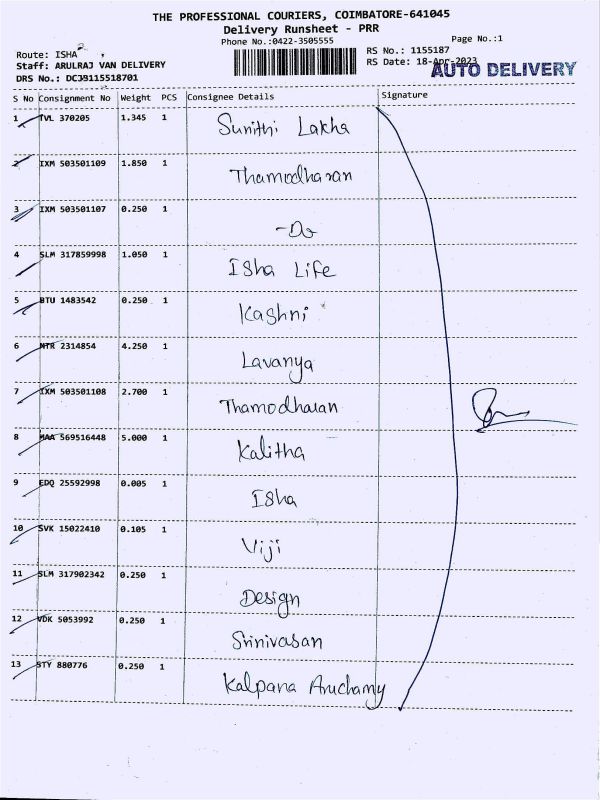 THE PROFESSIONAL COURIERS, COIMBATORE-641045
Delivery Runsheet - PRR
Phone No.:0422-3505555
Page No.:1
Route: ISHA
RS No.: 1155187
Staff: ARULRAJ VAN DELIVERY
RS Date: 18-Apr-2023
AUTO DELIVERY
DRS No.: DCJ9115518701
S No Consignment No Weight PCS Consignee Details Signature
1 TVL 370205 1.345 1 Sunithi Lakha
2 IXM 503501109 1.850 1 Thamodharan
3 IXM 503501107 0.250 1 -Do
4 SLM 317859998 1.050 1 Isha Life
5 BTU 1483542 0.250 1 Kashni
6 MTR 2314854 4.250 1 Lavanya
7 IXM 503501108 2.700 1 Thamodharan
8 MAA 569516448 5.000 1 Kalitha
9 EDQ 25592998 0.005 1 Isha
10 SVK 15022410 0.105 1 Viji
11 SLM 317902342 0.250 1 Design
12 VDK 5053992 0.250 1 Srinivasan
13 STY 880776 0.250 1 Kalpana Aruchamy